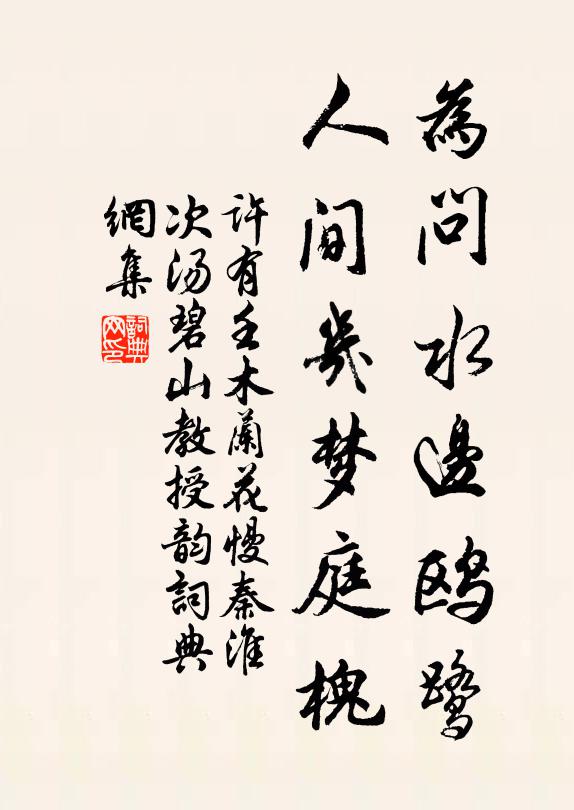 為問水邊鸥鹭
人间幾梦庭槐
許有壬木蘭花慢秦淮
次汤碧山教授韵詞典
網集
詞典
网印